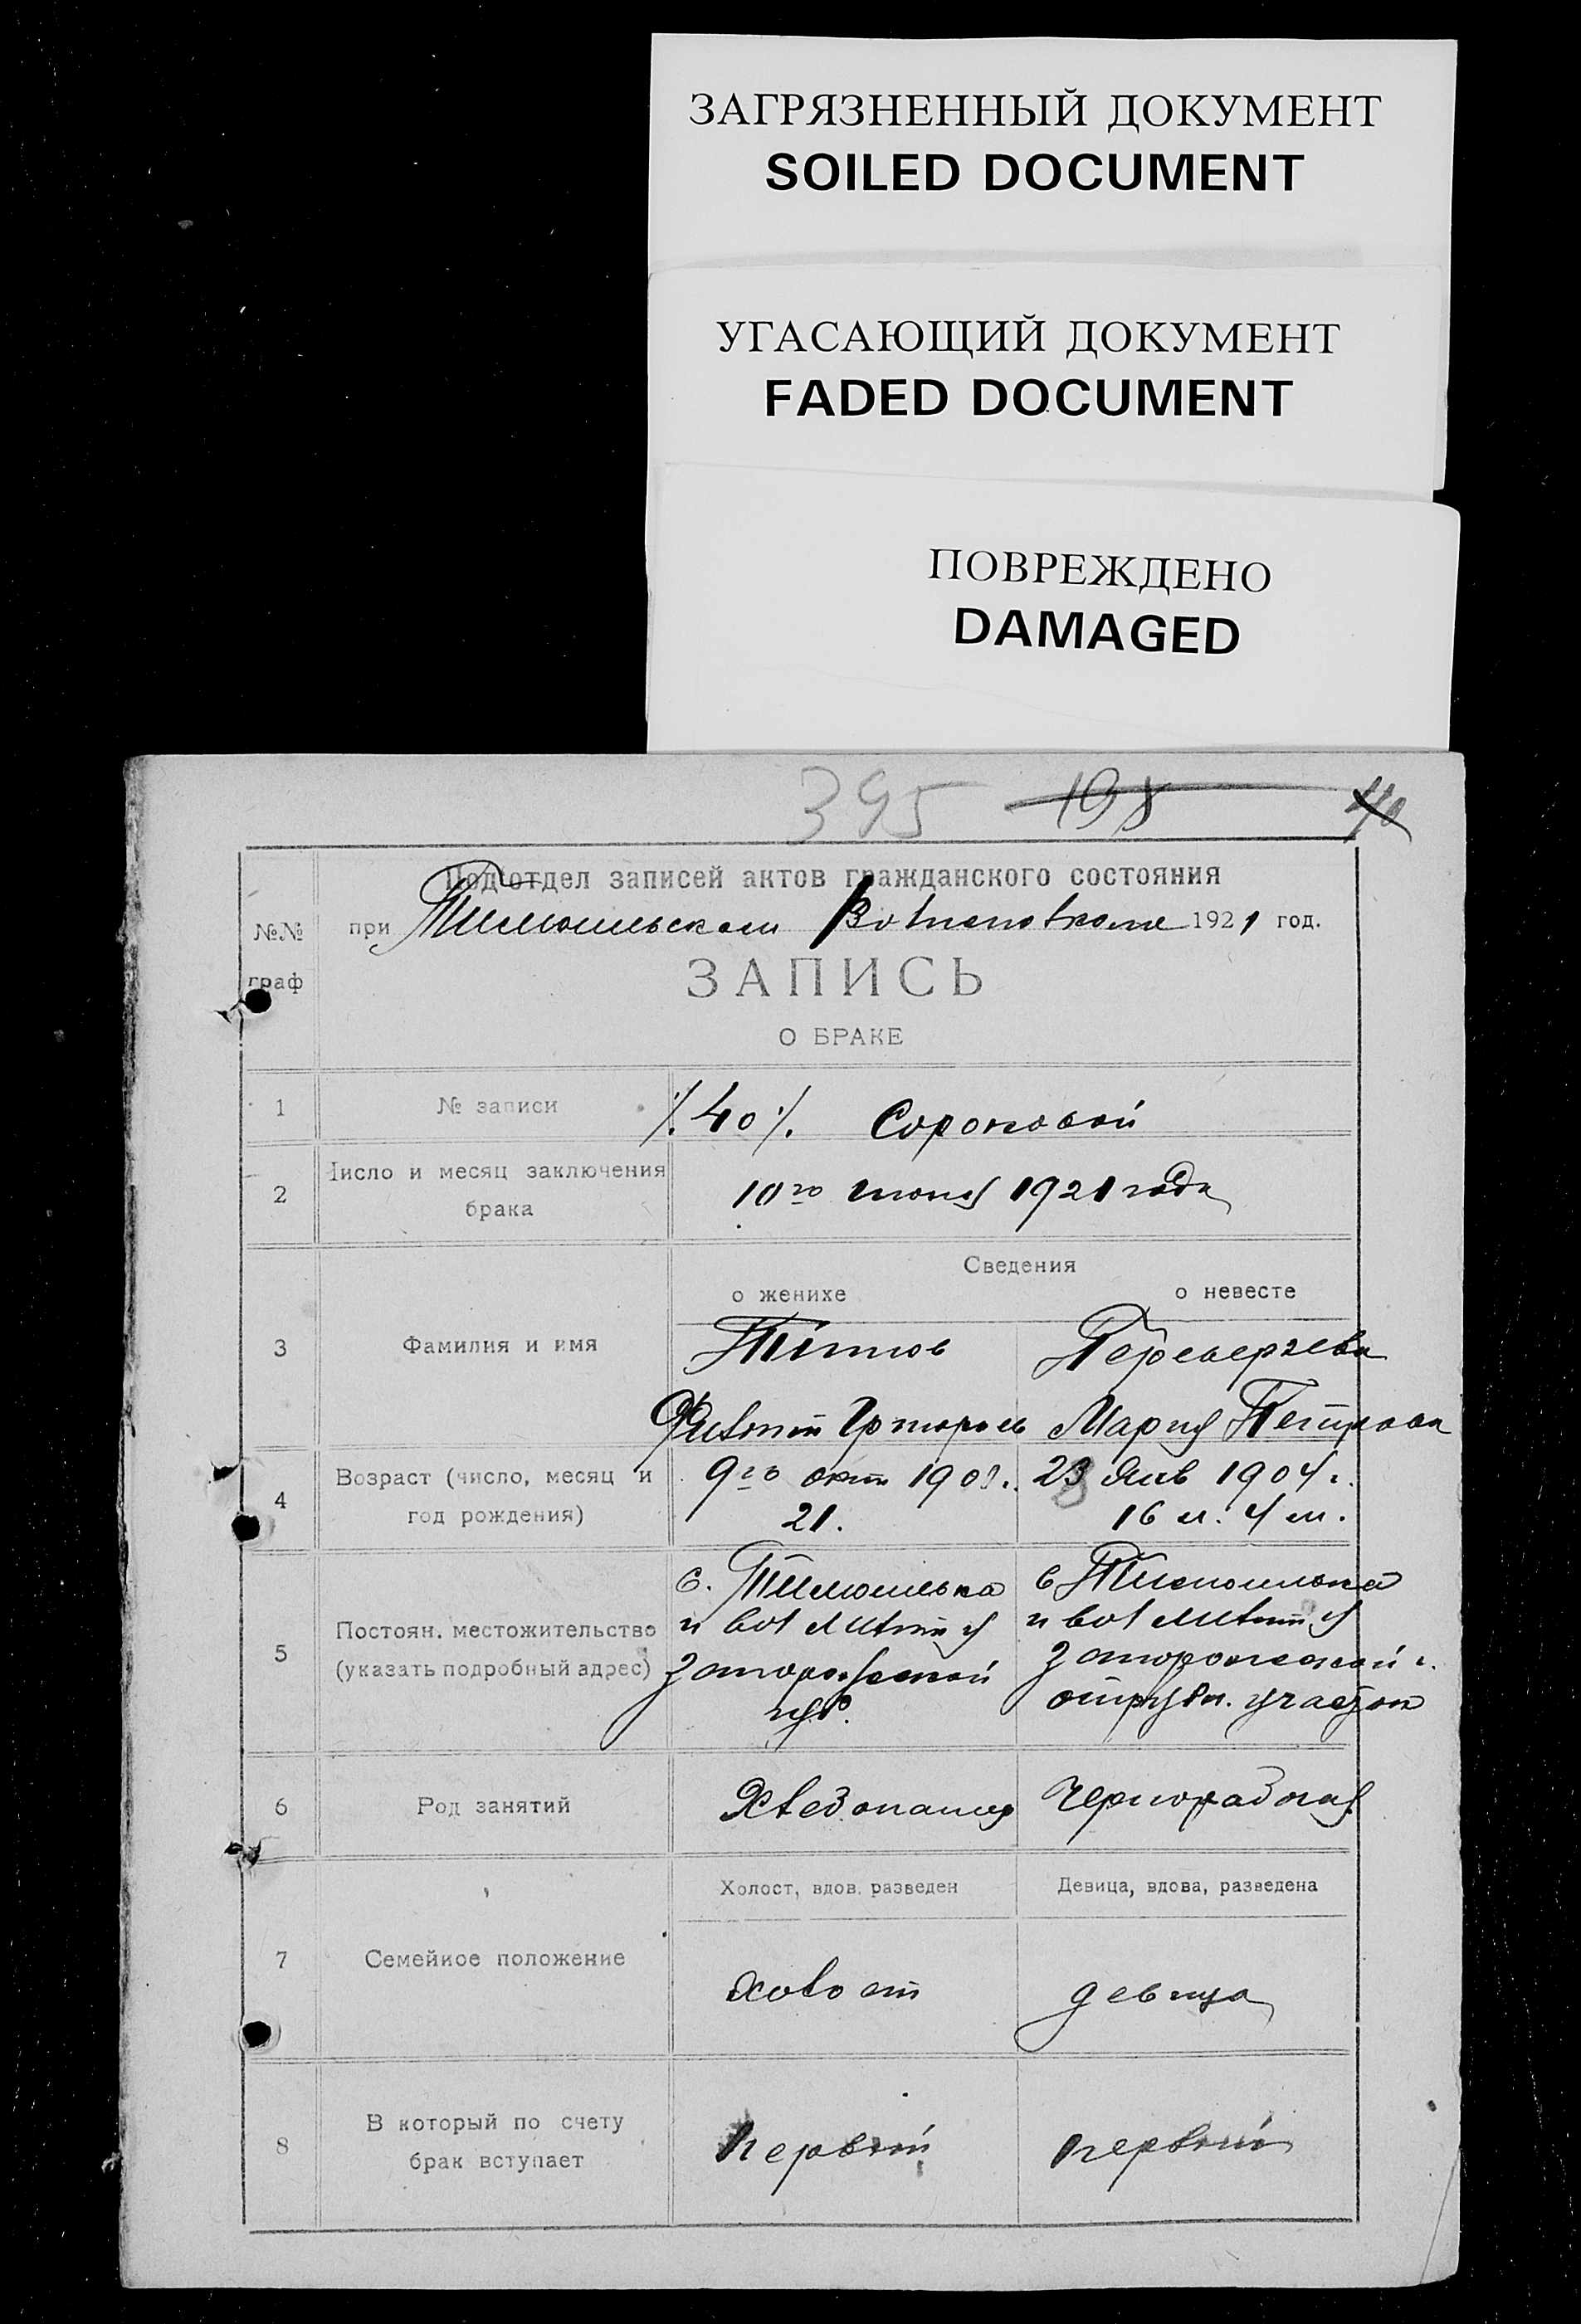 ЗАГРЯЗНЕННЫЙ ДОКУМЕНТ
SOILED DOCUMENT
УГАСАЮЩИЙ ДОКУМЕНТ
FADED DOCUMENT
ПОВРЕЖДЕНО
DAMAGED
395 198
№№ граф
Подотдел записей актов гражданского состояния
при Волисполкоме 1921 год.
ЗАПИСЬ
О БРАКЕ
1 № записи /.40/. Сороковой
2 Число и месяц заключения брака 10го июня 1921 года
Сведения
о женихе о невесте
3 Фамилия и имя Титов Переверзева
Филипп Мария Петрова
4 Возраст (число, месяц и год рождения) 9го окт 23 Янв 1904 г.
21. 16 л. 4 м.
5 Постоян. местожительство (указать подробный адрес) с. Тимошовка с Тимошовка
и вол Мелитоп у и вол Мелитоп у
Запорожской Запорожской г.
губ. отрубн. участок
6 Род занятий Хлебопашец Чернорабочая
Холост, вдов. разведен Девица, вдова, разведена
7 Семейное положение холост девица
8 В который по счету брак вступает первый первый